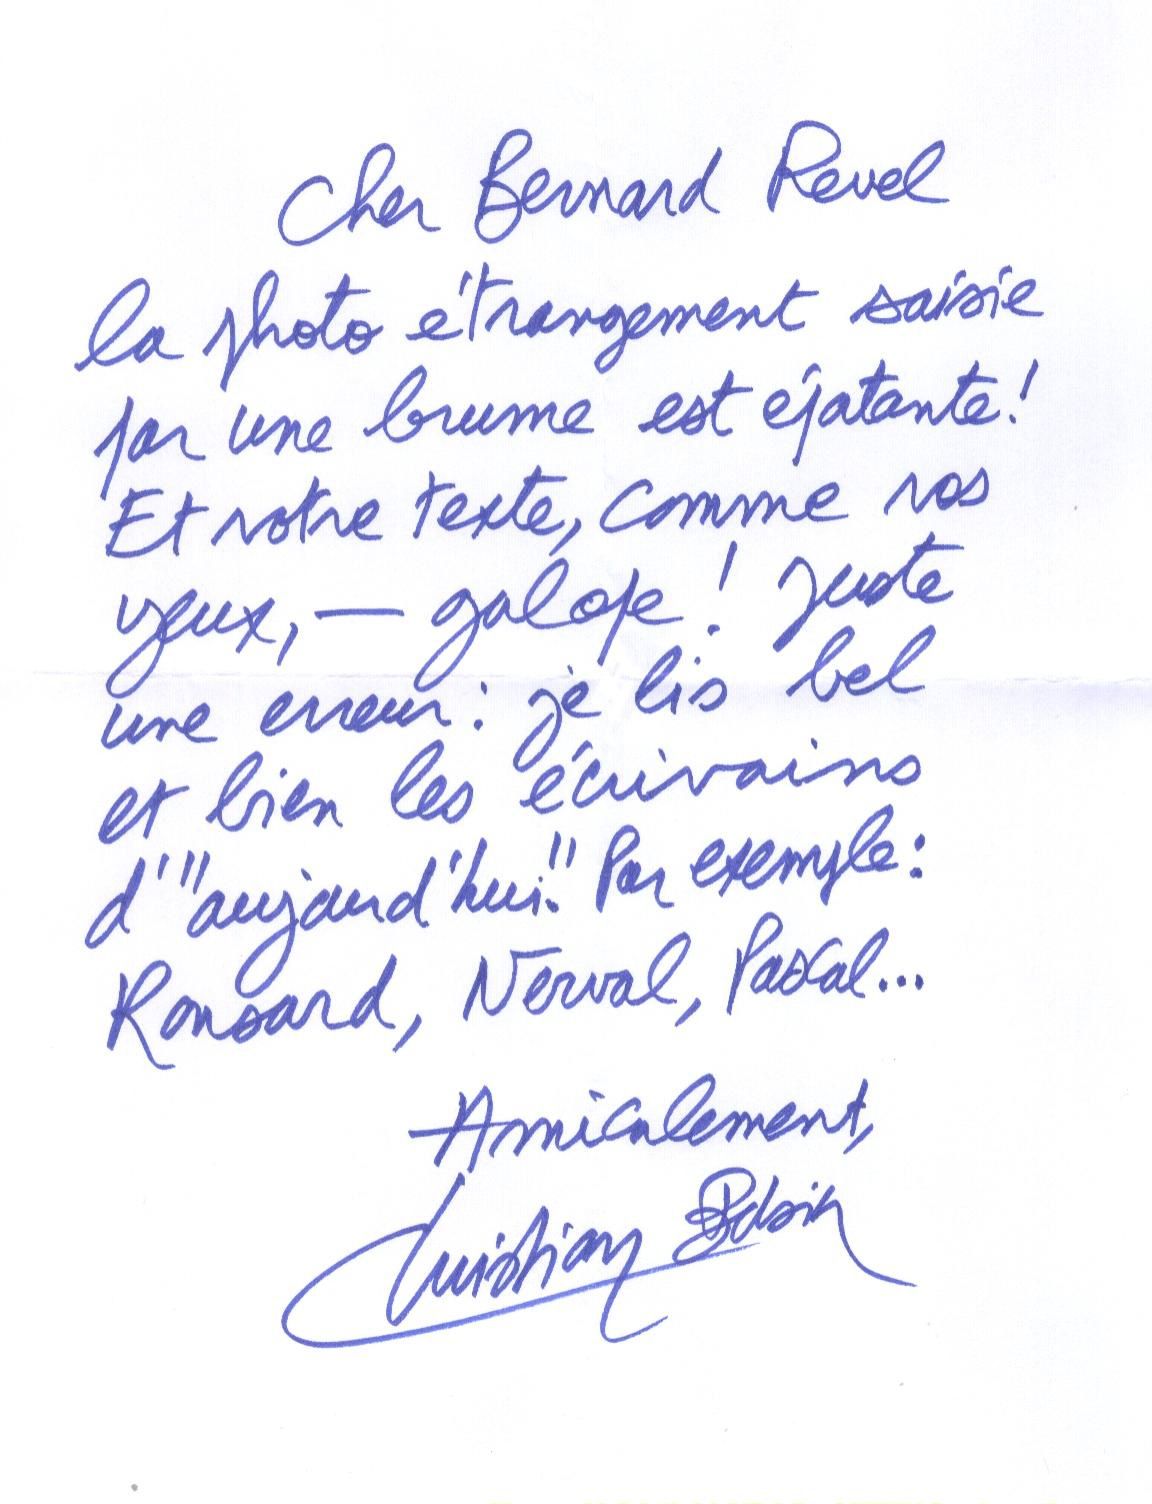 Cher Bernard Revel
la photo étrangement saisie
par une brume est épatante!
Et votre texte, comme vos
yeux, — galope! Juste
une erreur: je lis bel
et bien les écrivains
d'"aujourd'hui." Par exemple:
Ronsard, Nerval, Pascal...
Amicalement,
Christian Bobin